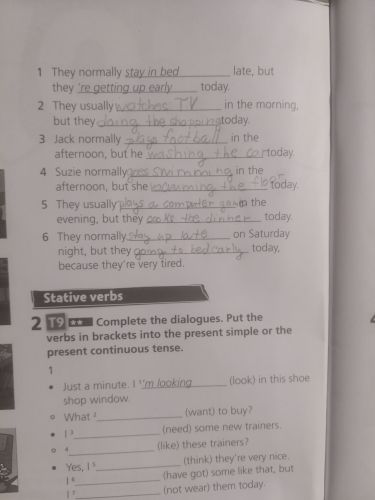 1 They normally stay in bed late, but
they 're getting up early today.
2 They usually watches TV in the morning,
but they doing the shopping today.
3 Jack normally plays football in the
afternoon, but he washing the car today.
4 Suzie normally goes swimming in the
afternoon, but she vacuuming the floor today.
5 They usually plays a computer game in the
evening, but they cooks the dinner today.
6 They normally stay up late on Saturday
night, but they going to bed early today,
because they're very tired.
Stative verbs
2 T9 ★★ Complete the dialogues. Put the
verbs in brackets into the present simple or the
present continuous tense.
1
• Just a minute. I ¹'m looking (look) in this shoe
shop window.
○ What ²__________ (want) to buy?
• I ³__________ (need) some new trainers.
○ ⁴__________ (like) these trainers?
• Yes, I ⁵__________ (think) they're very nice.
I ⁶__________ (have got) some like that, but
I ⁷__________ (not wear) them today.